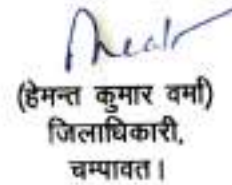 (हेमन्त कुमार वर्मा)
जिलाधिकारी,
चम्पावत।